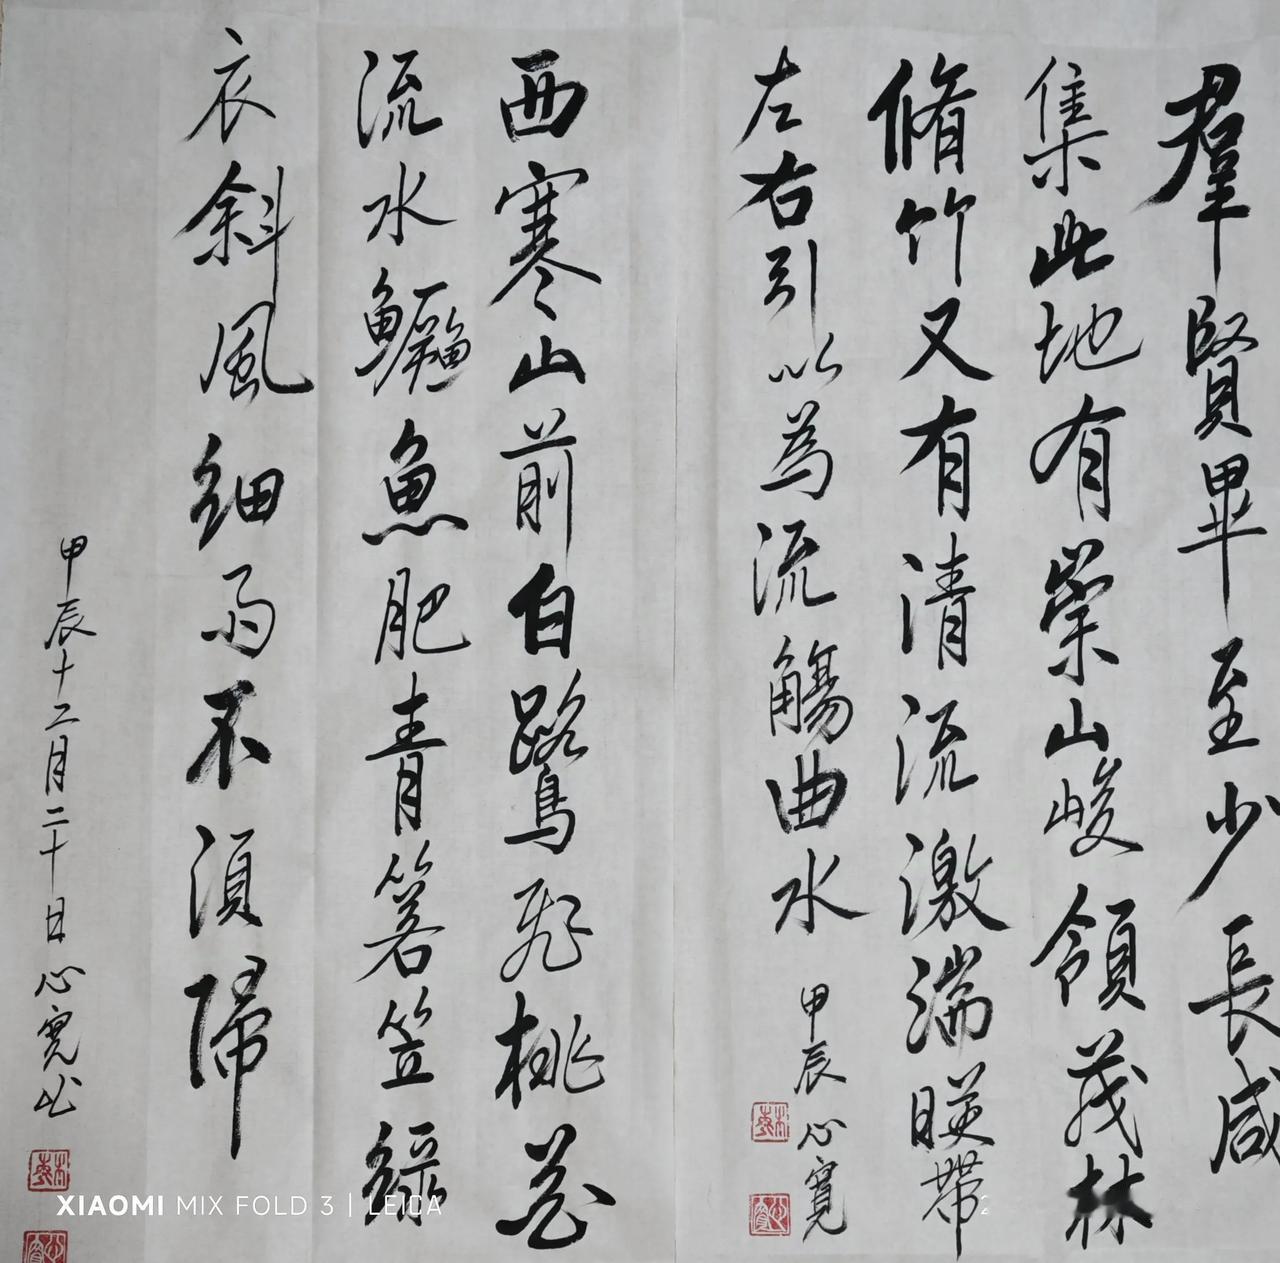 羣賢畢至少長咸
集此地有崇山峻領茂林
脩竹又有清流激湍暎帶
左右引以為流觴曲水
甲辰心寬
西塞山前白鷺飛桃花
流水鱖魚肥青箬笠綠蓑
衣斜風細雨不須歸
甲辰十二月二十日心寬
XIAOMI MIX FOLD 3 | LEICA